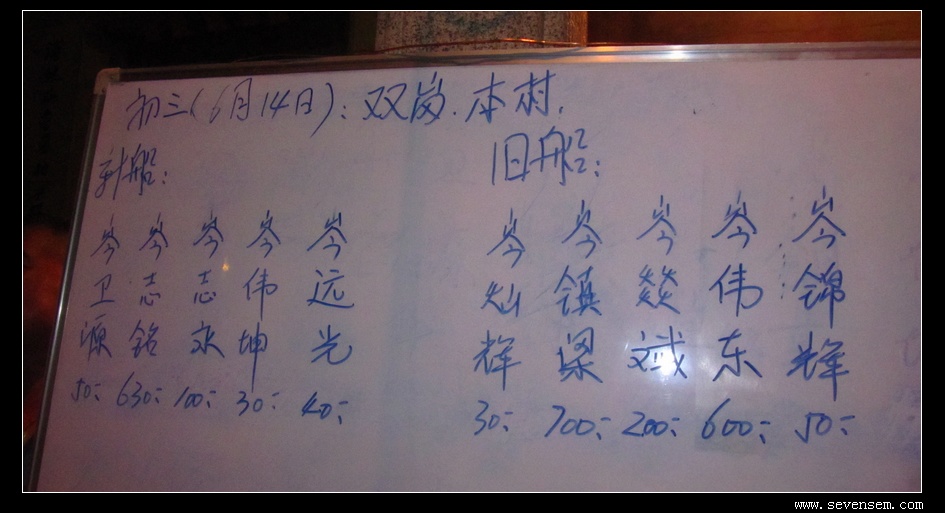 初三(6月14日):双岗.本村.
新船:
旧船:
岑卫源 50:
岑志铭 630:
岑志永 100:
岑伟坤 30:
岑远光 40:
岑灿辉 30:
岑镇梁 700:
岑燚斌 200:
岑伟东 600:
岑锦辉 50:
www.sevensem.com